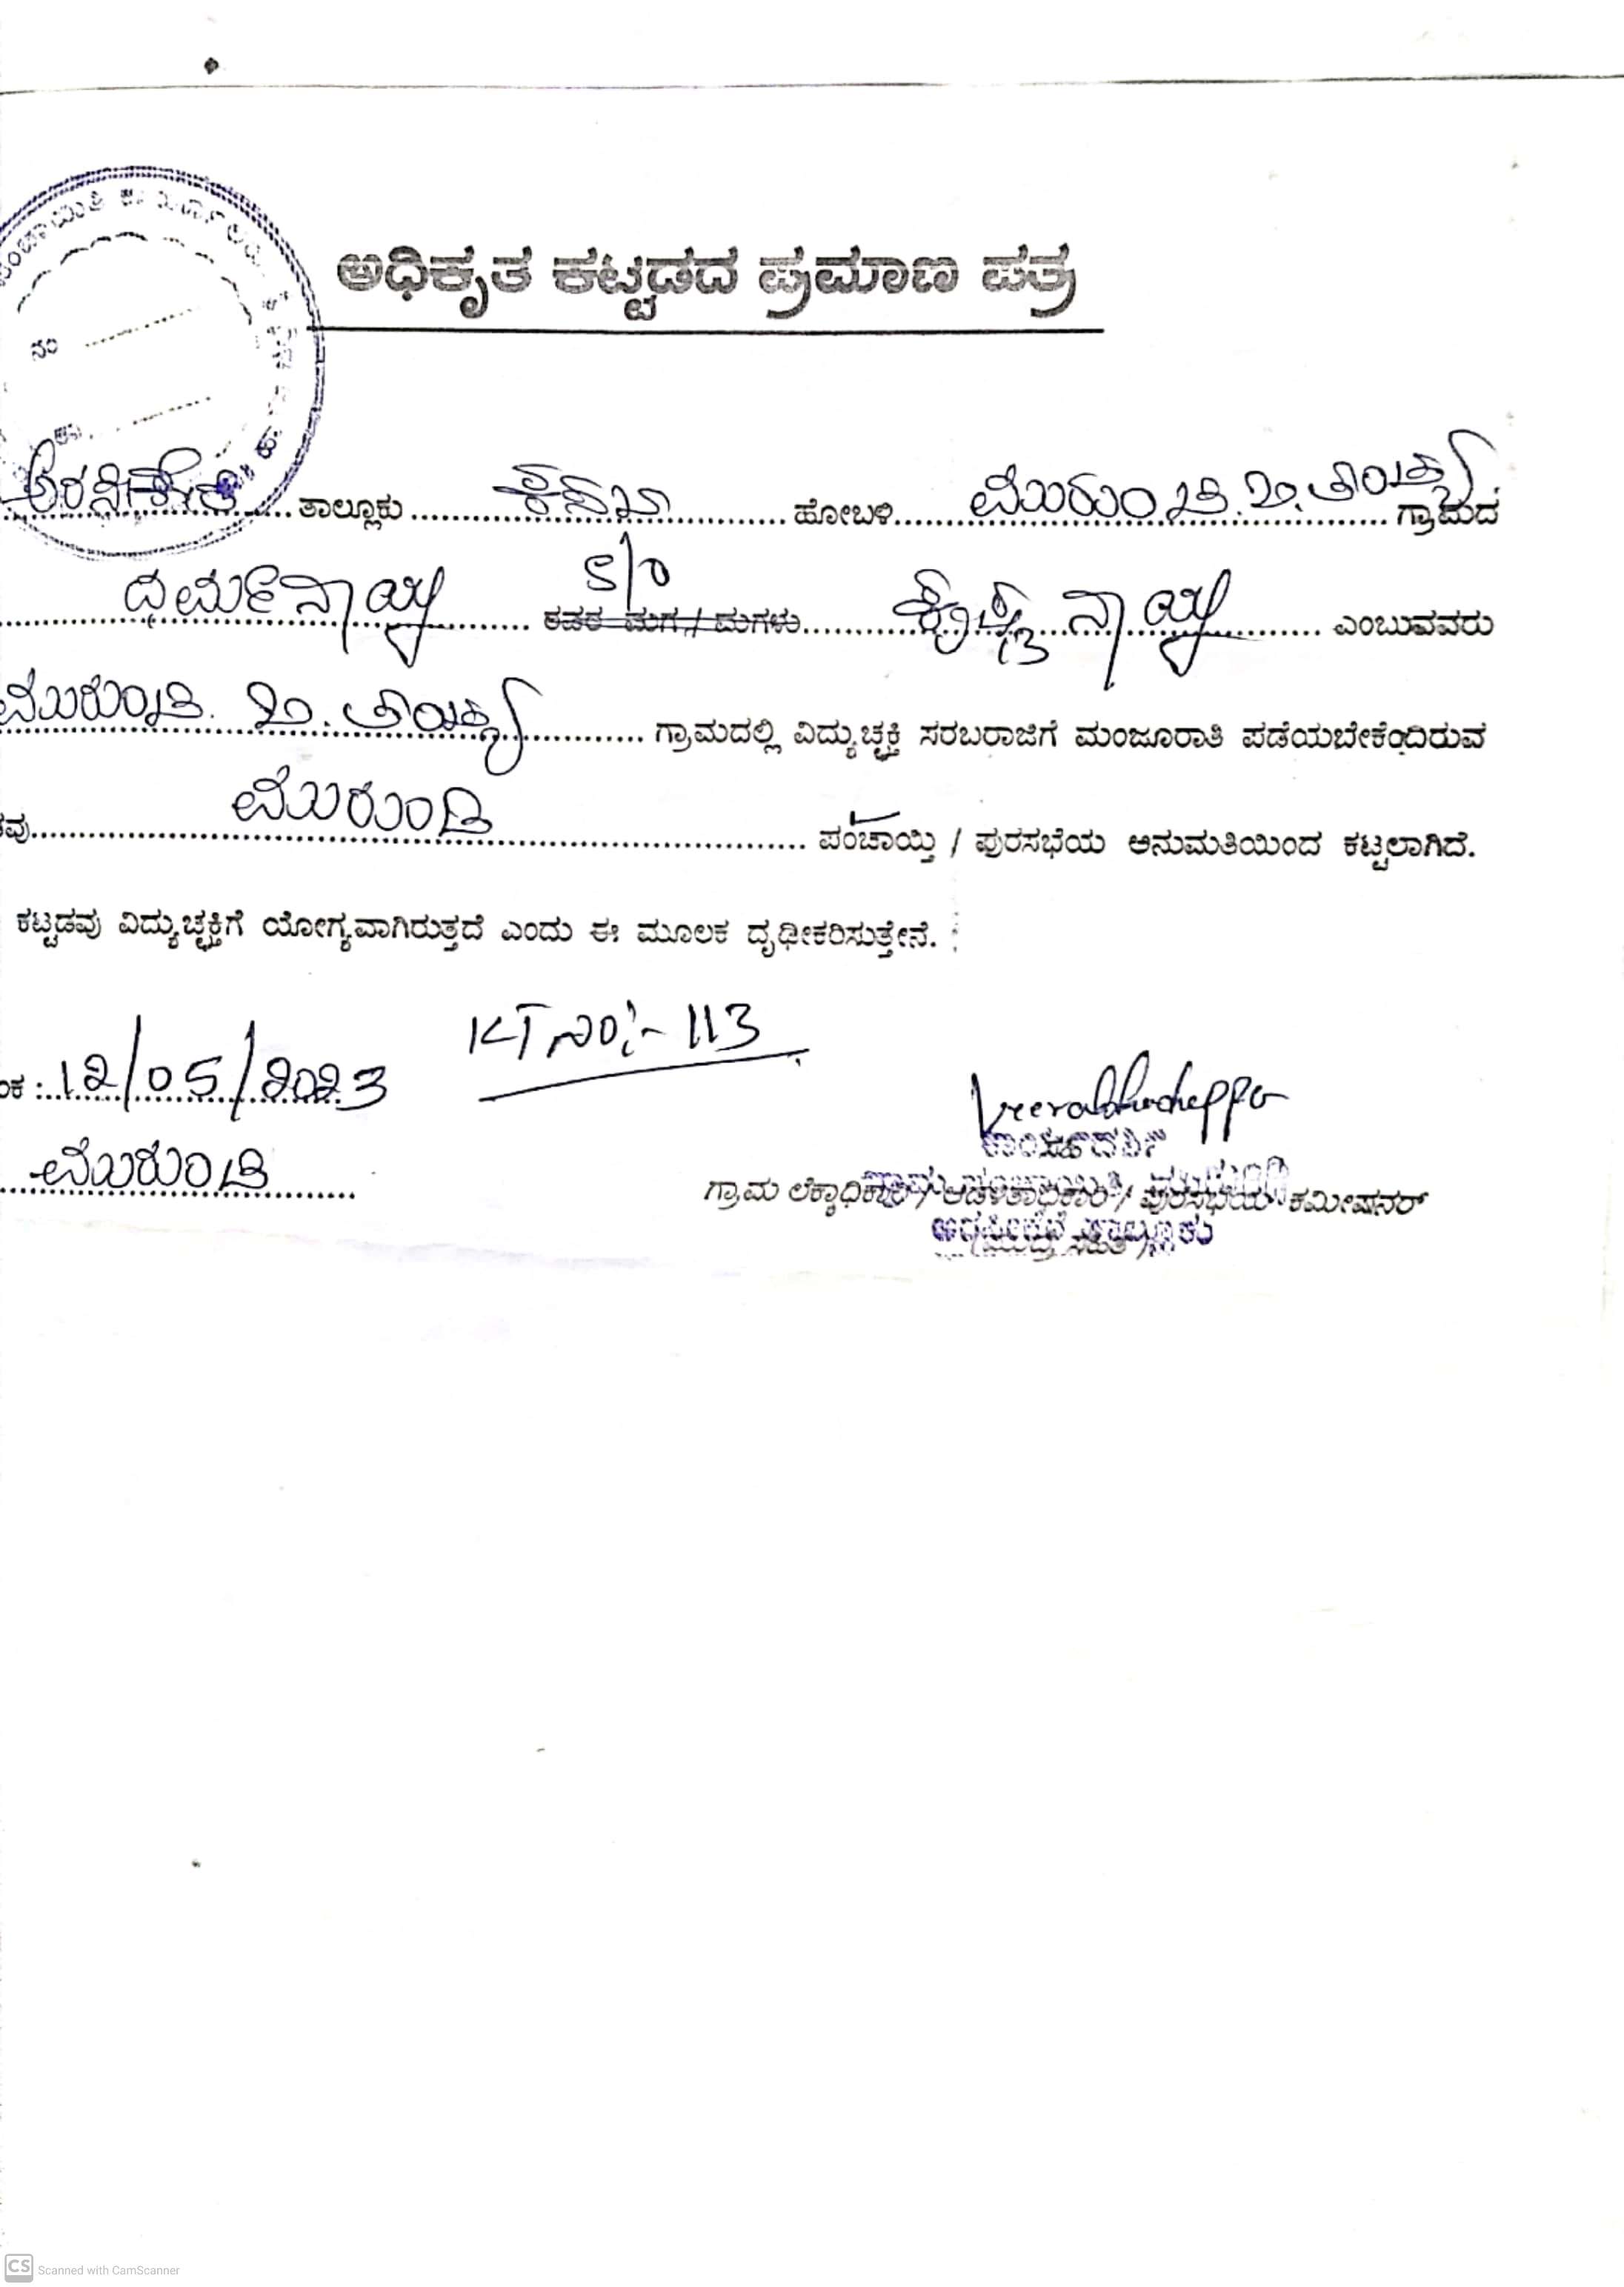 ಅಧಿಕೃತ ಕಟ್ಟಡದ ಪ್ರಮಾಣ ಪತ್ರ
ನಂ
ಅರಸೀಕೆರೆ ತಾಲ್ಲೂಕು ಕಸಬಾ ಹೋಬಳಿ ಮುರುಂಡಿ. ದೊ. ತಾಂಡ್ಯ ಗ್ರಾಮದ
ಧರ್ಮನಾಯ್ಕ S/o ರವರ ಮಗ / ಮಗಳು ಕೃಷ್ಣ ನಾಯ್ಕ ಎಂಬುವವರು
ಮುರುಂಡಿ. ದೊ. ತಾಂಡ್ಯ ಗ್ರಾಮದಲ್ಲಿ ವಿದ್ಯುಚ್ಛಕ್ತಿ ಸರಬರಾಜಿಗೆ ಮಂಜೂರಾತಿ ಪಡೆಯಬೇಕೆಂದಿರುವ
ವು ಮುರುಂಡಿ ಪಂಚಾಯ್ತಿ / ಪುರಸಭೆಯ ಅನುಮತಿಯಿಂದ ಕಟ್ಟಲಾಗಿದೆ.
ಕಟ್ಟಡವು ವಿದ್ಯುಚ್ಛಕ್ತಿಗೆ ಯೋಗ್ಯವಾಗಿರುತ್ತದೆ ಎಂದು ಈ ಮೂಲಕ ದೃಢೀಕರಿಸುತ್ತೇನೆ.
KT ನಂ:- 113
ಂಕ : 12/05/2023
Veerabhadrappa
ಕಾರ್ಯದರ್ಶಿ
ಮುರುಂಡಿ
ಗ್ರಾಮ ಲೆಕ್ಕಾಧಿಕಾರಿ / ಆಡಳಿತಾಧಿಕಾರಿ / ಪುರಸಭೆಯ ಕಮೀಷನರ್
ಅರಸೀಕೆರೆ ತಾಲ್ಲೂಕು
(ಮುದ್ರೆ ಸಹಿತ)
CS Scanned with CamScanner